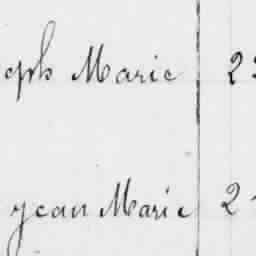 eph Marie 2
yean Marie 2